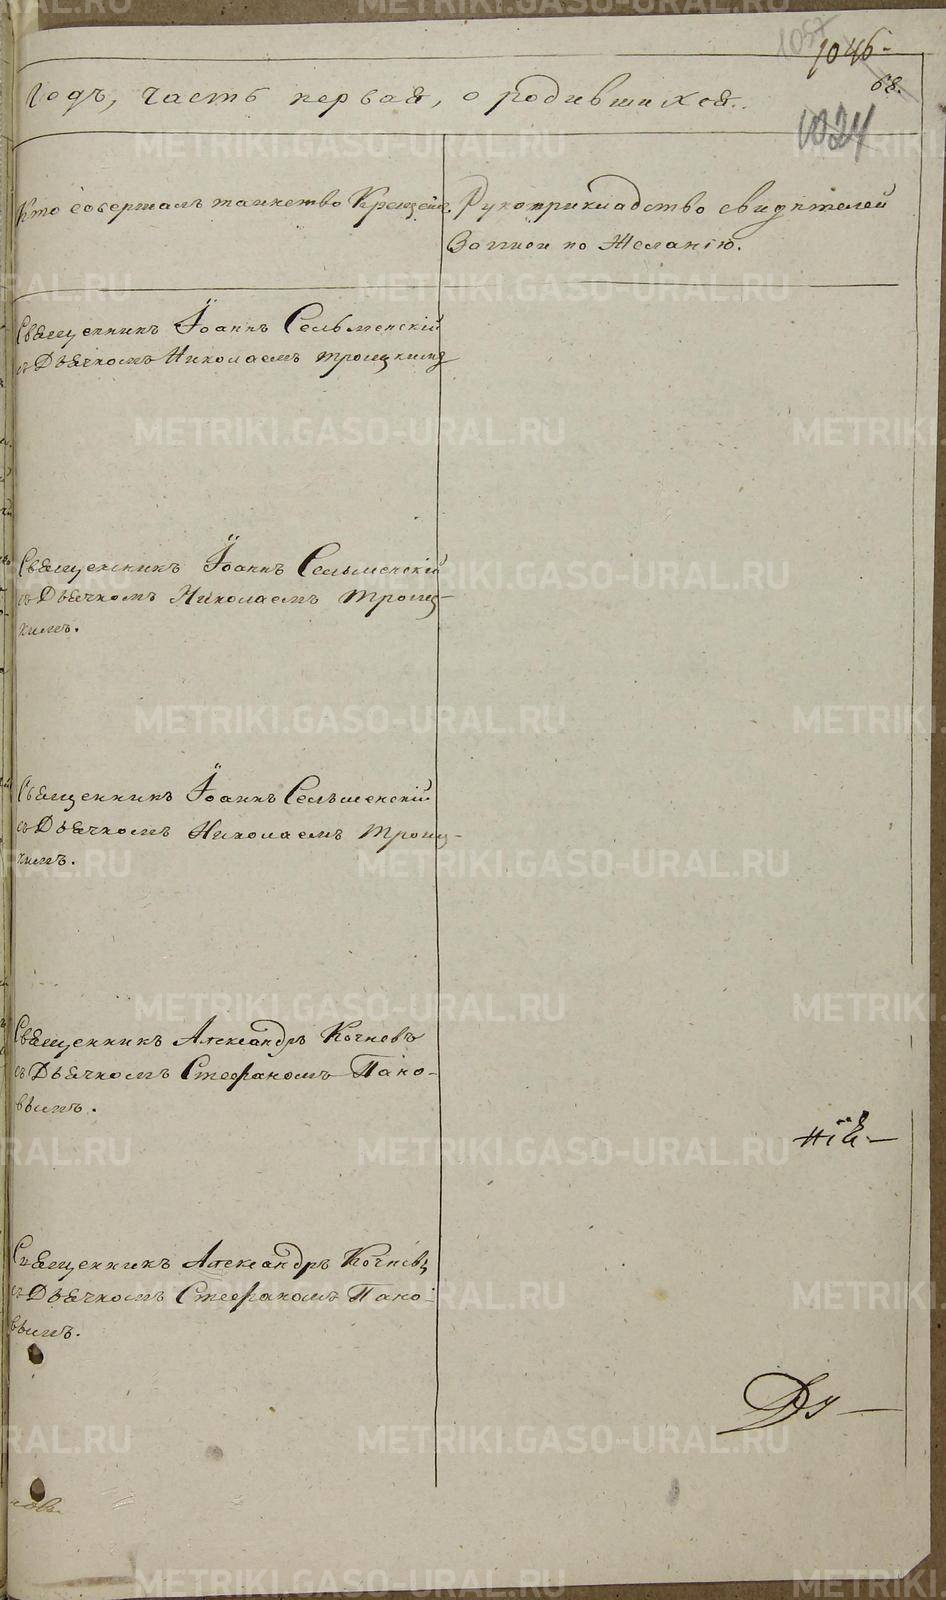 1057
1046
68.
1024
Годъ, часть первая, о родившихся.
Кто совершалъ таинство Крещенія.
Рукоприкладство свидѣтелей
Записи по Желанію.
Священникъ Іоаннъ Сельменскій
съ Дьячкомъ Николаемъ троицкимъ
Священникъ Іоаннъ Сельменскій
съ Дьячкомъ Николаемъ троиц-
кимъ.
Священникъ Іоаннъ Сельменскій
съ Дьячкомъ Николаемъ троиц-
кимъ.
Священникъ Александръ Кочневъ
съ Дьячкомъ Стефаномъ Пано-
вымъ.
нія
Священникъ Александръ Кочневъ
съ Дьячкомъ Стефаномъ Пано-
вымъ.
METRIKI.GASO-URAL.RU